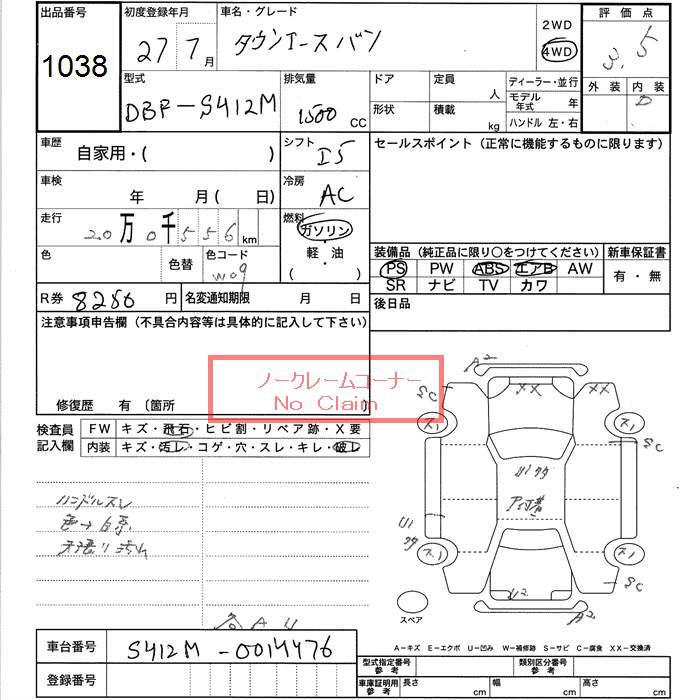 出品番号
1038
初度登録年月
27 7月
車名・グレード
タウンエースバン
2WD
4WD
評価点
3.5
外装 内装
D
型式
DBF-S412M
排気量
1500 CC
ドア
定員
人
ディーラー・並行
モデル年式 年
形状
積載
kg
ハンドル 左・右
車歴
自家用・( )
シフト
I5
セールスポイント（正常に機能するものに限ります）
車検
年 月( 日)
冷房
AC
走行
20万0千556km
燃料
ガソリン
・
軽・油
( )
色
色替
色コード
W09
装備品（純正品に限り〇をつけてください）
新車保証書
PS PW ABS エアB AW
SR ナビ TV カワ
有・無
R券 8250円
名変通知期限 月 日
後日品
注意事項申告欄（不具合内容等は具体的に記入して下さい）
ノークレームコーナー
No Claim
修復歴 有〔箇所
検査員記入欄
FW キズ・飛石・ヒビ割・リペア跡・X要
内装 キズ・汚レ・コゲ・穴・スレ・キレ・破レ
ハンドルスレ
色→白系
天張り汚れ
A2
SC
XX
XX
スレ
スレ
SC
U1
U1
スレ
スレ
U2
SC
A2
スペア
A－キズ E－エクボ U－凹み W－補修跡 S－サビ C－腐食 XX－交換済
車台番号
S412M-0014476
登録番号
型式指定番号 参考
類別区分番号 参考
車庫証明用 参考
長さ cm
幅 cm
高さ cm